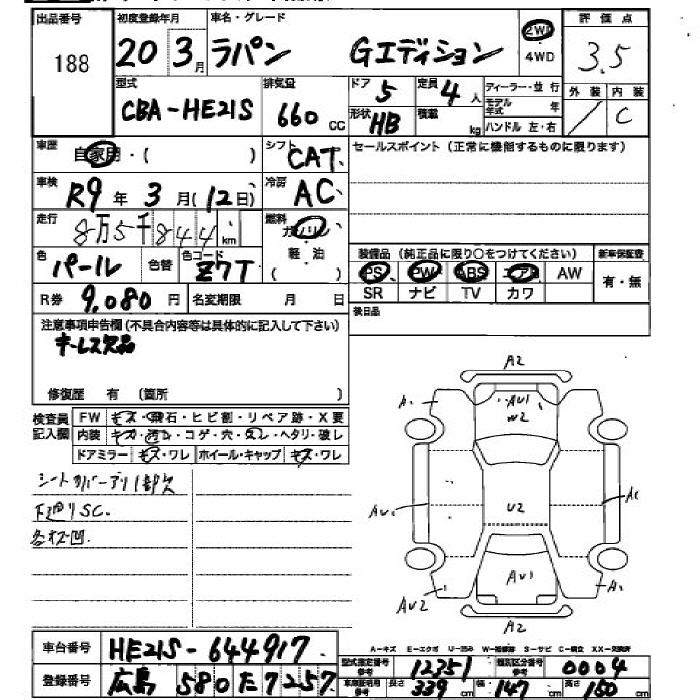 出品番号 初度登録年月 車名・グレード 評価点
188 20年3月 ラパン Gエディション 2WD 4WD 3.5
型式 排気量 ドア 定員 ディーラー・並行 外装 内装
CBA-HE21S 660cc 5 4人 モデル年式 年 / C
形状 HB 積載 kg ハンドル 左・右
車歴 自家用・( ) シフト CAT セールスポイント (正常に機能するものに限ります)
車検 R9年3月(12日) 冷房 AC
走行 8万5千844km 燃料 ガソリン
軽・油
( )
色 パール 色替 色コード Z7T
装備品 (純正品に限り○をつけてください) 新車保証書
PS PW ABS エアB AW 有・無
SR ナビ TV カワ
R券 9,080円 名変期限 月 日 後日品
注意事項申告欄 (不具合内容等は具体的に記入して下さい)
キーレス欠品
修復歴 有 (箇所 )
検査員記入欄
FW キズ・飛石・ヒビ割・リペア跡・X要
内装 キズ・汚レ・コゲ・穴・スレ・ヘタリ・破レ
ドアミラー キズ・ワレ ホイール・キャップ キズ・ワレ
シートカバーアリ1部欠
下廻りSC.
各松凹.
A2
A1
AU1
W2
AU1
U2
A1
AU1
AU2
A1
A2
車台番号 HE21S-644917
登録番号 広島 580 E 7257
A-キズ E-エクボ U-凹み W-補修跡 S-サビ C-腐食 XX-交換済
型式指定番号 参考 12351 類別区分番号 参考 0004
車庫証明用 参考 長さ 339cm 幅 147cm 高さ 150cm